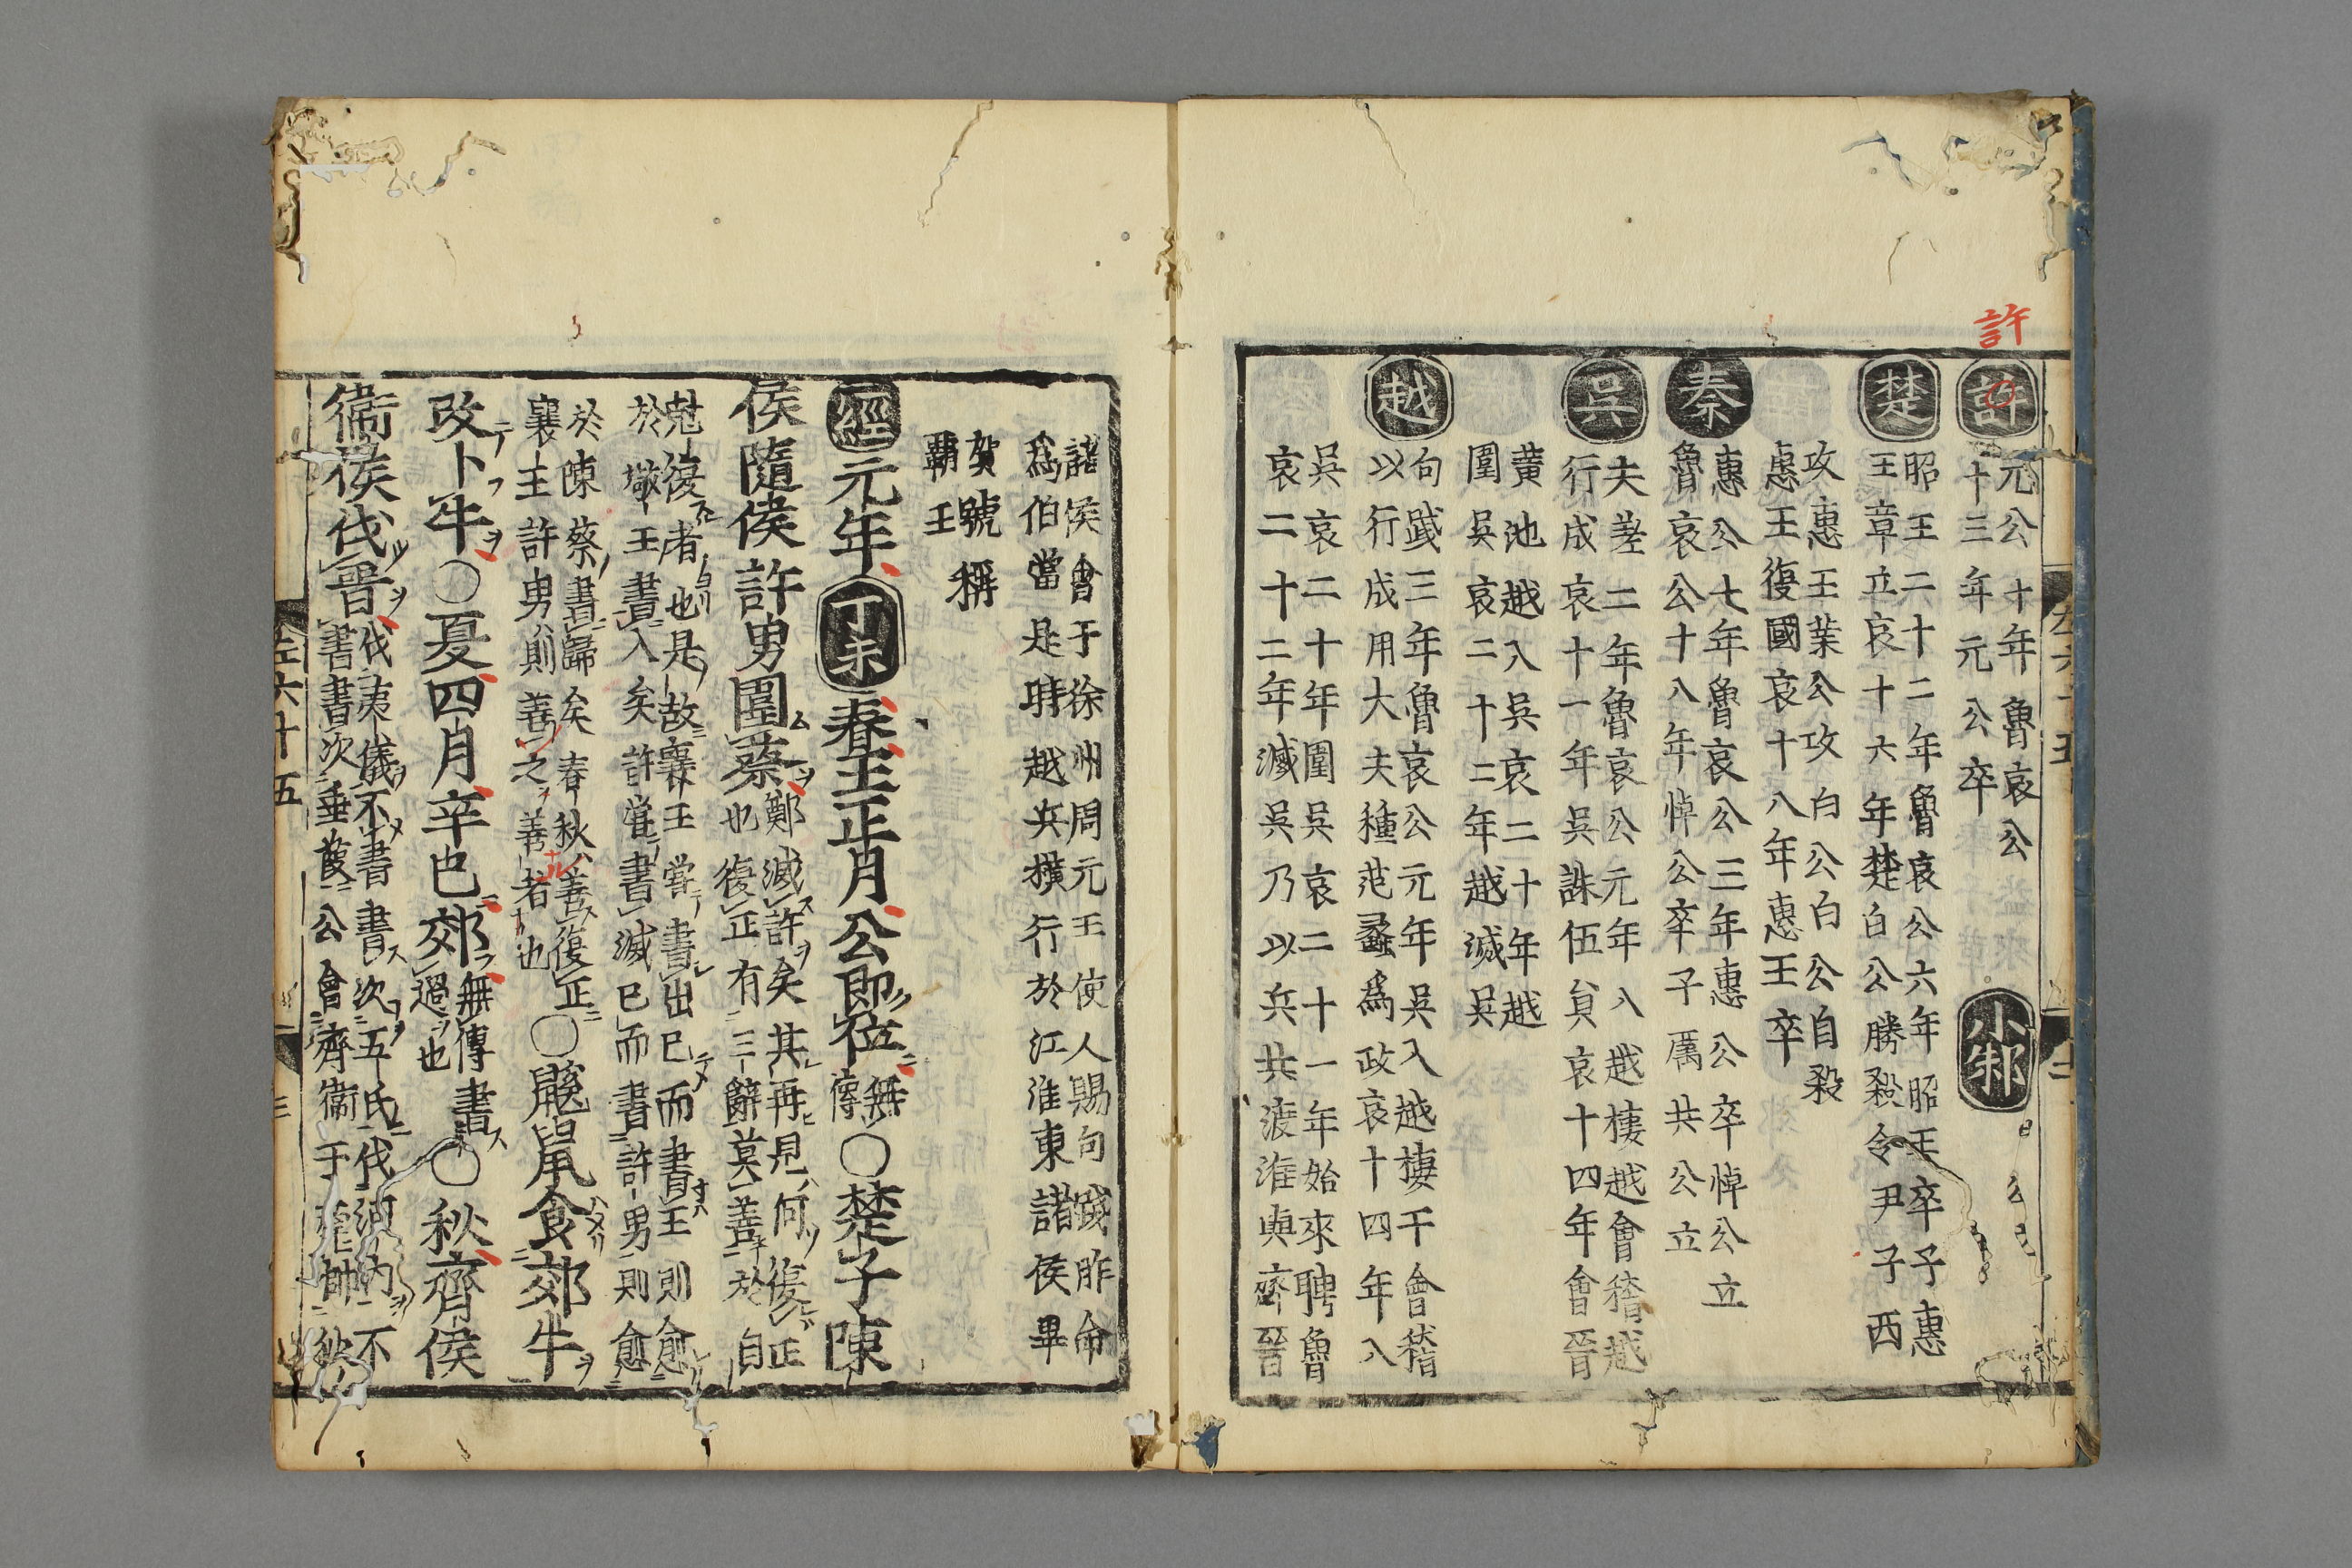 許
許
元公十年魯哀公
十三年元公卒
小邾
楚
昭王二十二年魯哀公六年昭王卒子惠
王章立哀十六年楚白公勝殺令尹子西
攻惠王葉公攻白公白公自殺
惠王復國哀十八年惠王卒
秦
惠公七年魯哀公三年惠公卒悼公立
魯哀公十八年悼公卒子厲共公立
吳
夫差二年魯哀公元年入越棲越會稽越
行成哀十一年吳誅伍員哀十四年會晉
黃池越入吳哀二十年越
圍吳哀二十二年越滅吳
越
句踐三年魯哀公元年吳入越棲于會稽
以行成用大夫種范蠡為政哀十四年入
吳哀二十年圍吳哀二十一年始來聘魯
哀二十二年滅吳乃以兵共渡淮與齊晉
諸侯會于徐州周元王使人賜句踐胙命
為伯當是時越兵橫行於江淮東諸侯畢
賀號稱
霸王
經元年丁未春王正月公即位無傳○楚子陳
侯隨侯許男圍蔡鄭滅許矣其再見何復正
也復正有三辭莫善於自
尅復者也是故襄王嘗書出已而書王則愈
於敬王書入矣許嘗書滅已而書許男則愈
於陳蔡書歸矣春秋善復正
襄王許男則善之善者也○鼷鼠食郊牛
改卜牛○夏四月辛巳郊無傳書
過也○秋齊侯
衞侯伐晉伐夷儀不書書次五氏伐河內不
書書次垂葭公會齊衞于
左六十五
三